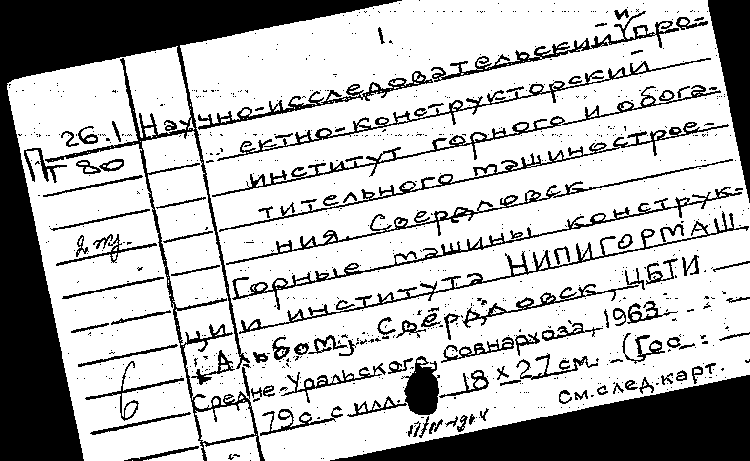 1.
26.1 Научно-исследовательский и про-
Пт 80 ектно-конструкторский
институт горного и обога-
тительного машинострое-
ния. Свердловск.
Горные машины конструк-
ции института НИПИГОРМАШ.
[Альбом]. Свердловск, ЦБТИ
Средне-Уральского Совнархоза, 1963.
6
79 с. с илл. 18 x 27 см. (Гос.
См. след. карт.